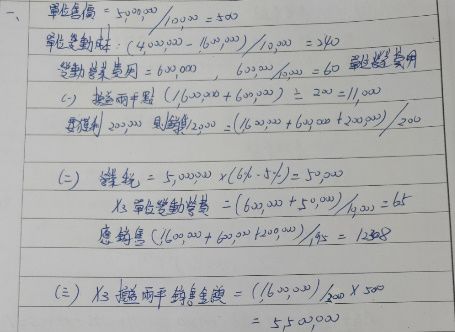 一、 單位售價 = 5,000,000/10,000 = 500
單位變動成本：(4,000,000 - 1,600,000)/10,000 = 240
變動營業費用 = 600,000 , 600,000/10,000 = 60 單位營業費用
(一) 損益兩平點 (1,600,000 + 600,000) ÷ 200 = 11,000
要獲利 200,000 則銷售 12,000 = (1,600,000 + 600,000 + 200,000)/200
(二) 課稅 = 5,000,000 × (6% - 5%) = 50,000
X3 單位變動營費 = (600,000 + 50,000)/10,000 = 65
應銷售 (1,600,000 + 600,000 + 200,000)/195 = 12308
(三) X3 損益兩平銷售金額 = (1,600,000)/200 × 500
= 5,500,000